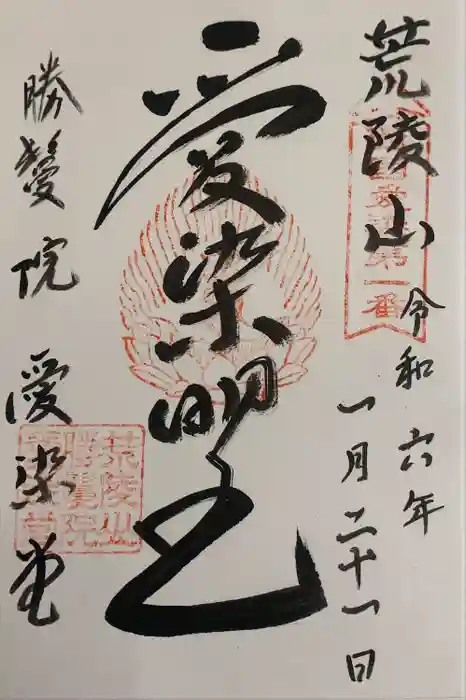 荒陵山
令和六年
一月二十一日
愛染明王
勝鬘院 愛染堂
荒陵山
勝鬘院